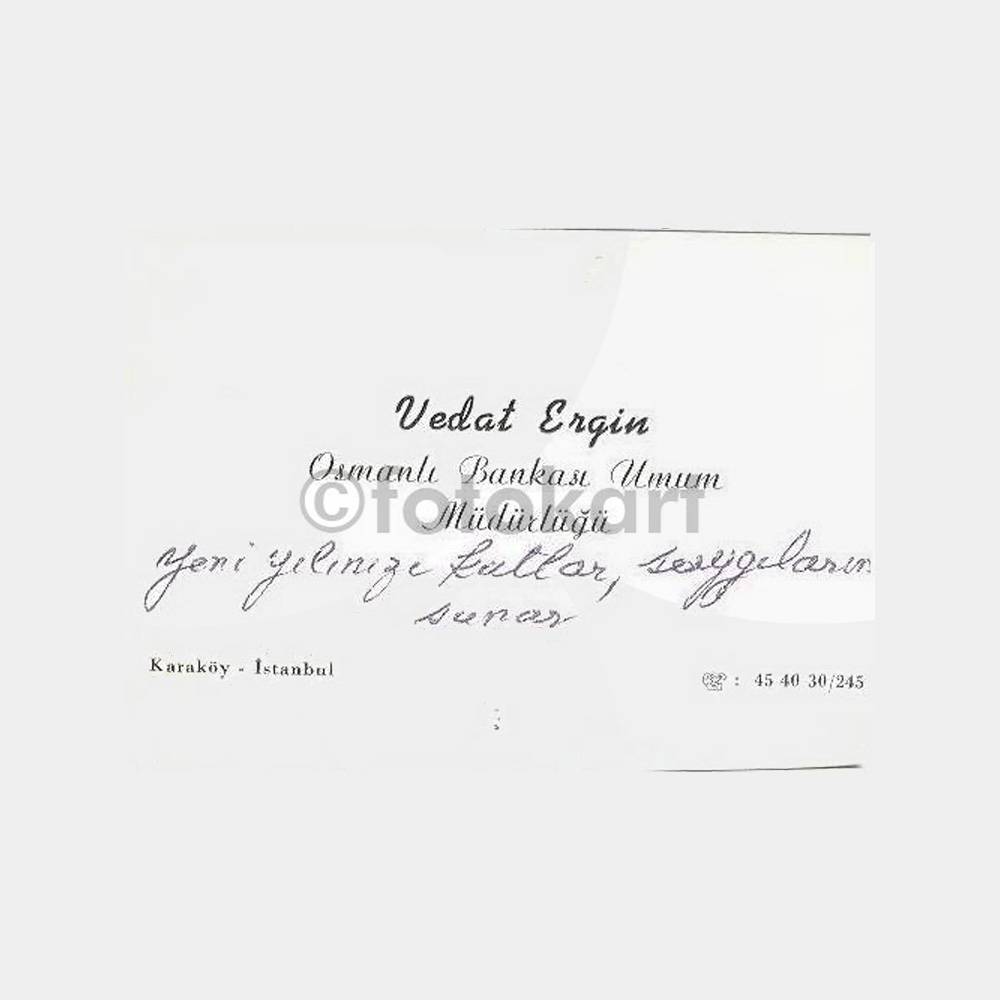 Vedat Ergin
Osmanlı Bankası Umum
Müdürlüğü
©fotokart
Yeni yılınızı kutlar, saygılarını
sunar
Karaköy - İstanbul
☎ : 45 40 30/245